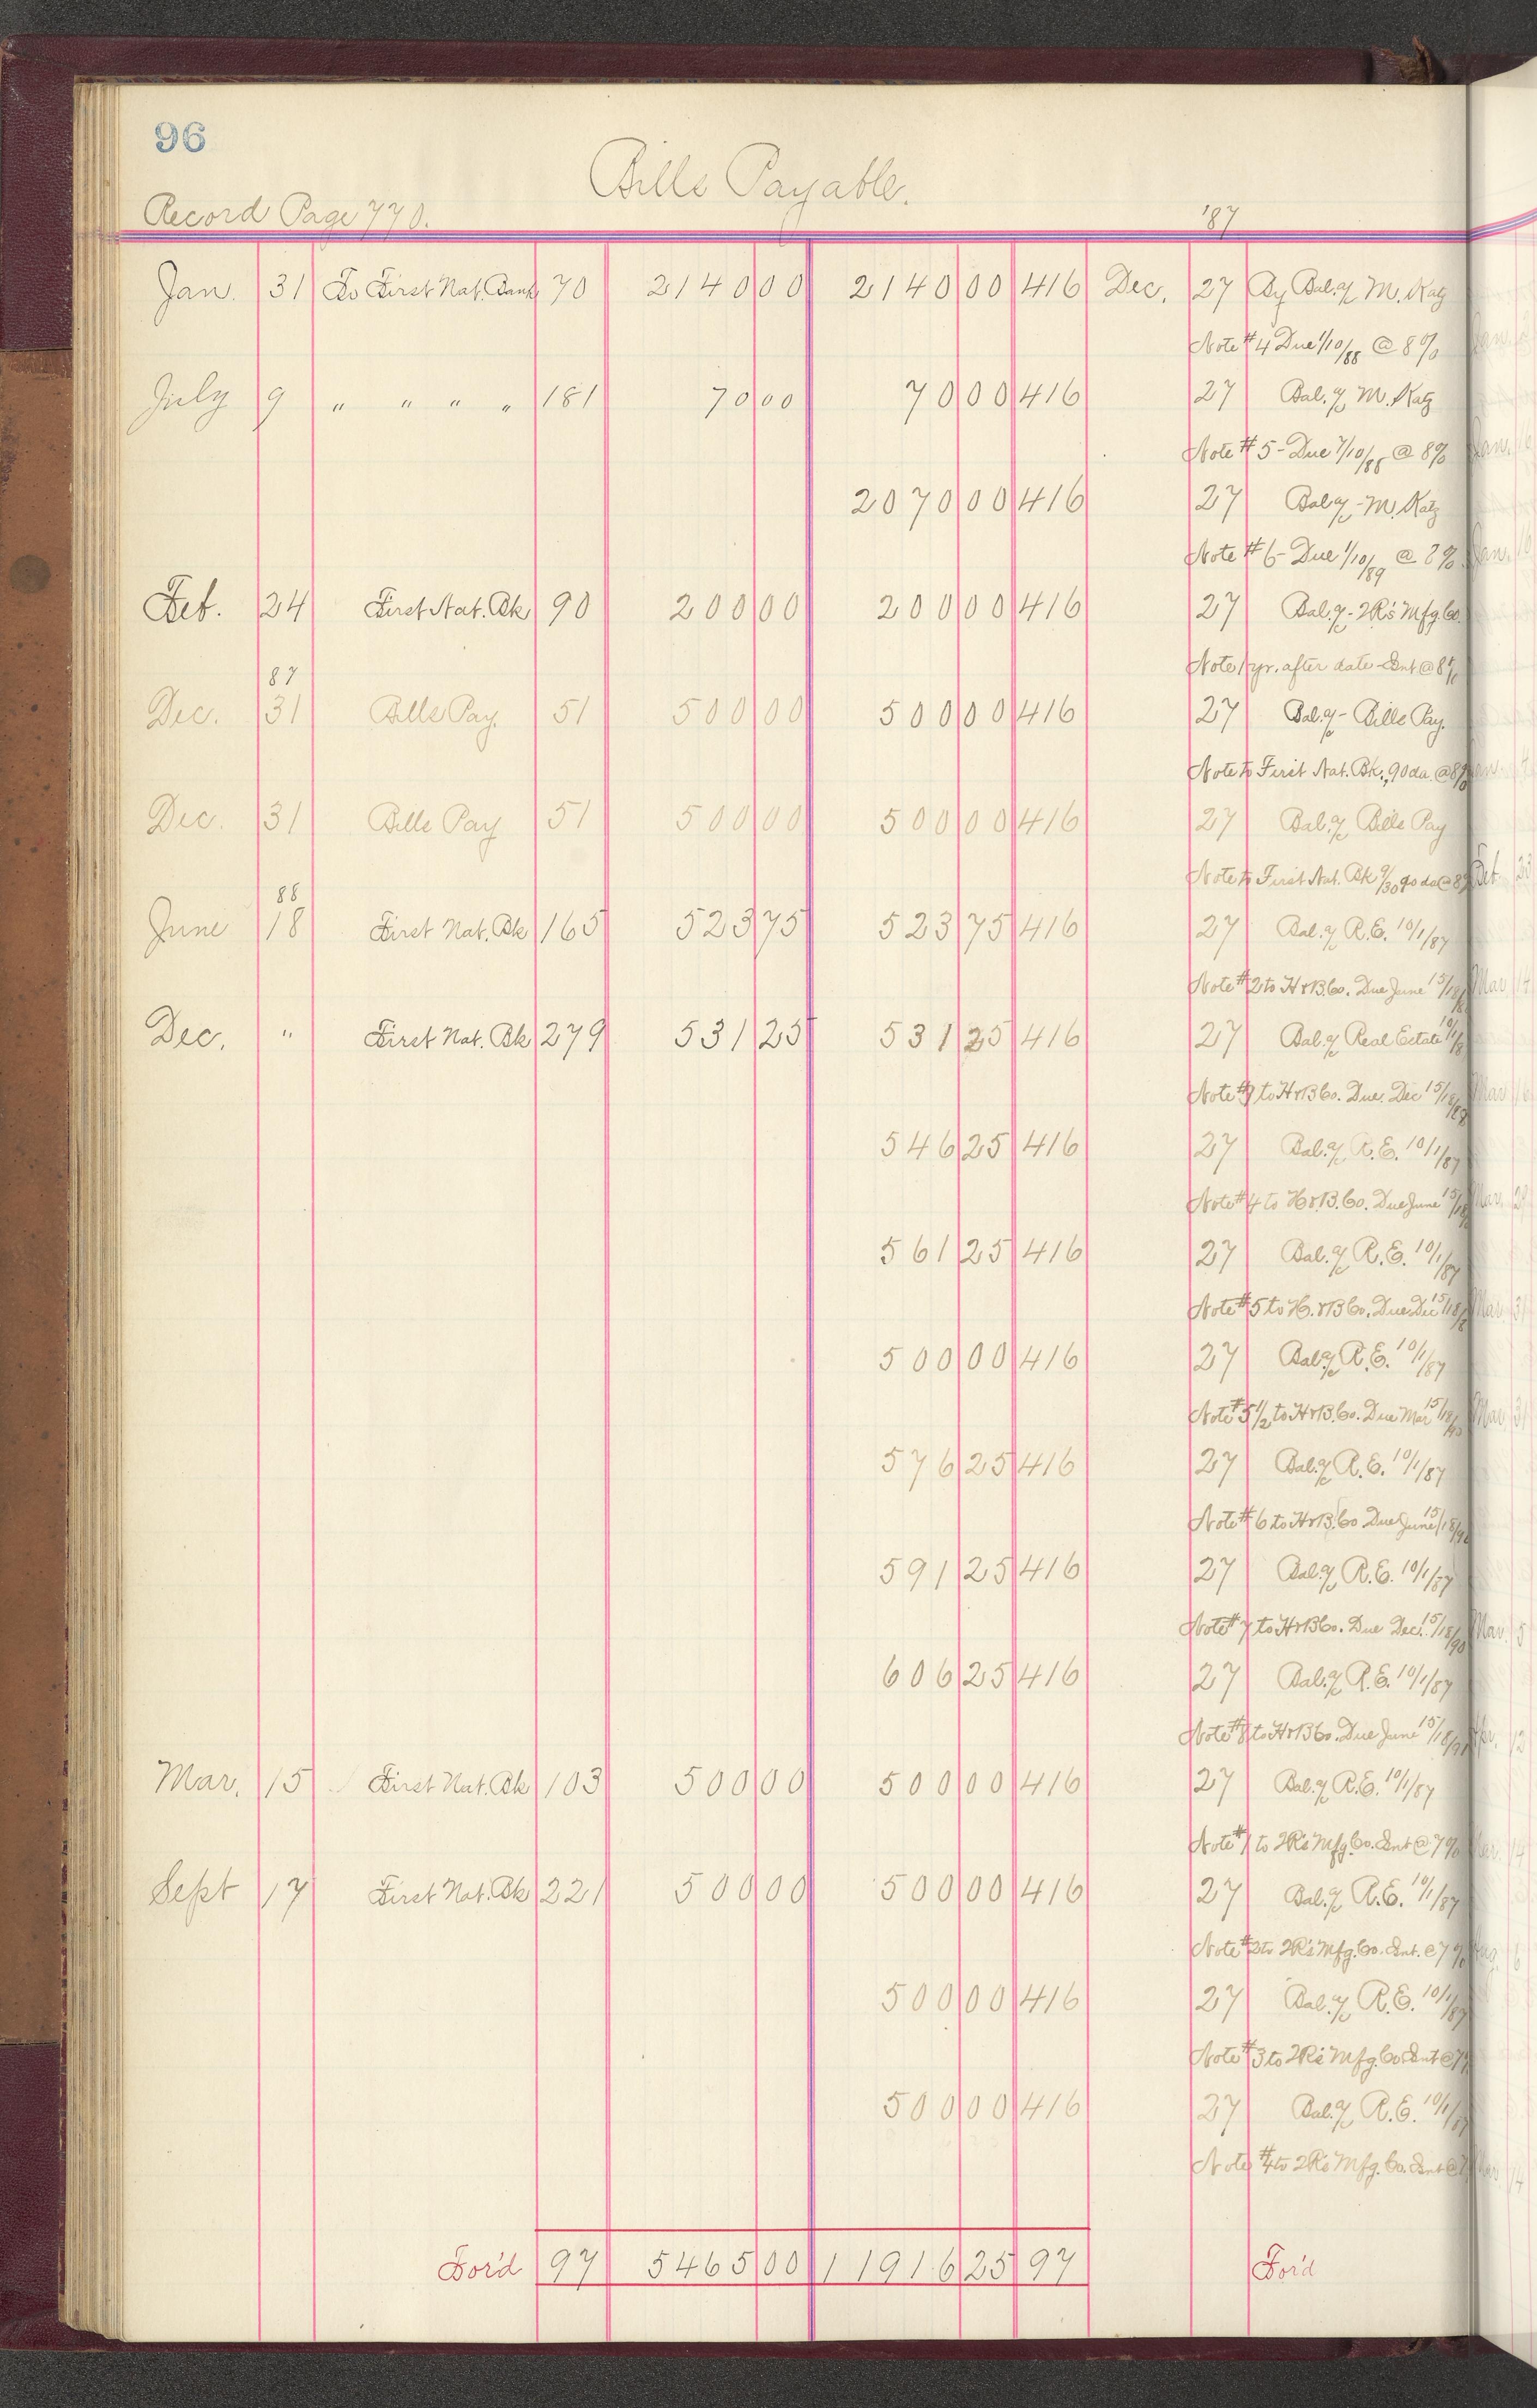 96
Bills Payable.
Record Page 770.
'87
Jan. 31 To First Nat. Bank 70 2140 00 2140 00 416 Dec. 27 By Bal. % M. Katz
Note #4 Due 1/10/88 @ 8%
July 9 " " " " 181 70 00 70 00 416 27 Bal. % M. Katz
Note #5 - Due 7/10/88 @ 8%
2070 00 416 27 Bal % - M. Katz
Note #6 - Due 1/10/89 @ 8%
Feb. 24 First Nat. Bk 90 200 00 200 00 416 27 Bal. % - 2R's Mfg. Co.
Note 1 yr. after date - Int @ 8%
87
Dec. 31 Bills Pay. 51 500 00 500 00 416 27 Bal. % - Bills Pay.
Note to First Nat. Bk., 90 da. @ 8%
Dec. 31 Bills Pay 51 500 00 500 00 416 27 Bal. % Bills Pay
Note to First Nat. Bk 9/30 90 da @ 8%
88
June 18 First Nat. Bk 165 523 75 523 75 416 27 Bal. % R.E. 10/1/87
Note #2 to H & B. Co. Due June 15/18
Dec. " First Nat. Bk 279 531 25 531 25 416 27 Bal. % Real Estate 10/1/8
Note #3 to H & B Co. Due. Dec 15/18/88
546 25 416 27 Bal. % R.E. 10/1/87
Note #4 to H & B. Co. Due June 15/18
561 25 416 27 Bal. % R.E. 10/1/87
Note #5 to H. & B Co. Due Dec 15/18
500 00 416 27 Bal % R.E. 10/1/87
Note #5 1/2 to H & B. Co. Due Mar 15/18/90
576 25 416 27 Bal. % R.E. 10/1/87
Note #6 to H & B. Co Due June 15/18/90
591 25 416 27 Bal. % R.E. 10/1/87
Note #7 to H & B Co. Due Dec. 15/18/90
606 25 416 27 Bal. % R.E. 10/1/87
Note #8 to H & B Co. Due June 15/18/91
Mar. 15 First Nat. Bk 103 500 00 500 00 416 27 Bal. % R.E. 10/1/87
Note #1 to 2R's Mfg. Co. Int @ 7%
Sept 17 First Nat. Bk 221 500 00 500 00 416 27 Bal. % R.E. 10/1/87
Note #2 to 2R's Mfg. Co. Int. @ 7%
500 00 416 27 Bal. % R.E. 10/1/87
Note #3 to 2R's Mfg. Co Int @ 7%
500 00 416 27 Bal. % R.E. 10/1/87
Note #4 to 2R's Mfg. Co. Int @ 7
For'd 97 5465 00 11916 25 97 For'd